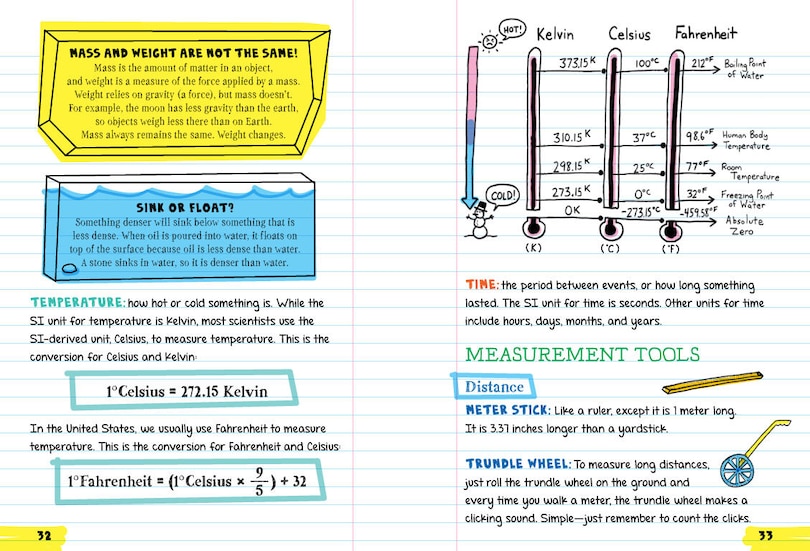 MASS AND WEIGHT ARE NOT THE SAME!
Mass is the amount of matter in an object,
and weight is a measure of the force applied by a mass.
Weight relies on gravity (a force), but mass doesn't.
For example, the moon has less gravity than the earth,
so objects weigh less there than on Earth.
Mass always remains the same. Weight changes.
SINK OR FLOAT?
Something denser will sink below something that is
less dense. When oil is poured into water, it floats on
top of the surface because oil is less dense than water.
A stone sinks in water, so it is denser than water.
TEMPERATURE: how hot or cold something is. While the
SI unit for temperature is Kelvin, most scientists use the
SI-derived unit, Celsius, to measure temperature. This is the
conversion for Celsius and Kelvin:
1°Celsius = 272.15 Kelvin
In the United States, we usually use Fahrenheit to measure
temperature. This is the conversion for Fahrenheit and Celsius:
1°Fahrenheit = (1°Celsius × 9/5) + 32
32
HOT!
Kelvin Celsius Fahrenheit
373.15K 100°C 212°F Boiling Point
of Water
310.15K 37°C 98.6°F Human Body
Temperature
298.15K 25°C 77°F Room
Temperature
COLD!
273.15K 0°C 32°F Freezing Point
of Water
0K -273.15°C -459.58°F Absolute
Zero
(K) (°C) (°F)
TIME: the period between events, or how long something
lasted. The SI unit for time is seconds. Other units for time
include hours, days, months, and years.
MEASUREMENT TOOLS
Distance
METER STICK: Like a ruler, except it is 1 meter long.
It is 3.37 inches longer than a yardstick.
TRUNDLE WHEEL: To measure long distances,
just roll the trundle wheel on the ground and
every time you walk a meter, the trundle wheel makes a
clicking sound. Simple—just remember to count the clicks.
33